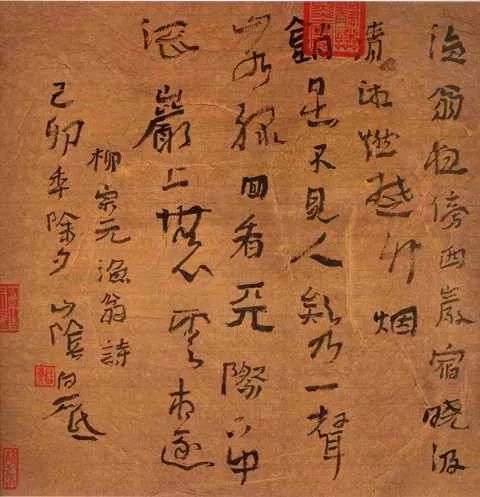 漁翁夜傍西巖宿曉汲
清湘燃楚竹烟
銷日出不見人欸乃一聲
山水緑回看天際下中
流巖上無心雲相逐
柳宗元漁翁詩
己卯年除夕山陰白砥